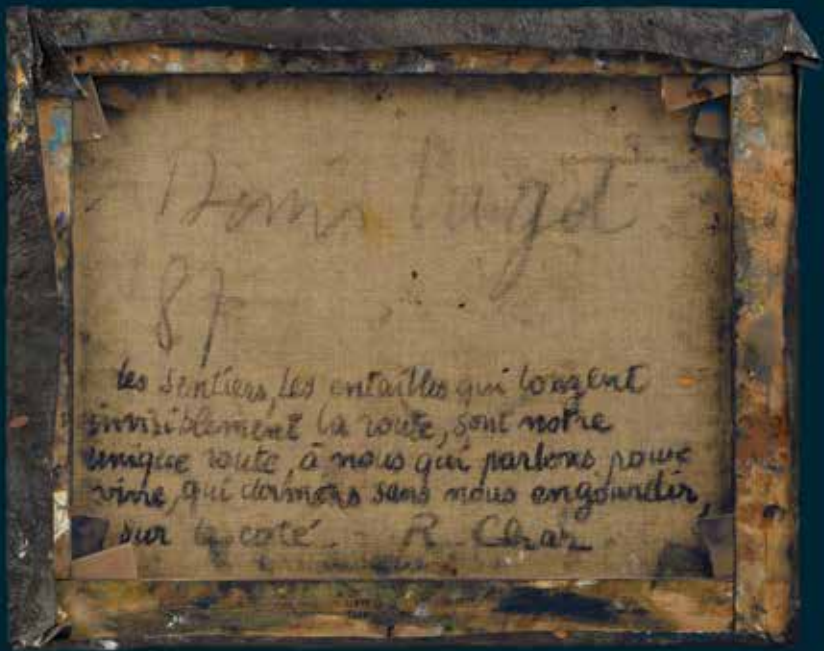 Denis Laget
87
les sentiers, les entailles qui longent
invisiblement la route, sont notre
unique route, à nous qui parlons pour
vivre, qui dormons sans nous engourdir,
sur le coté. R. Char